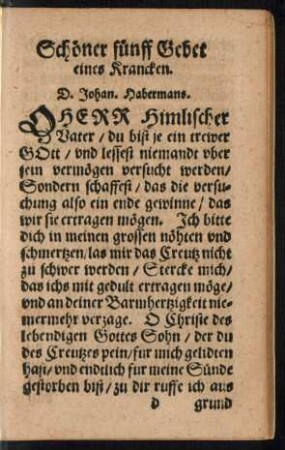 Schöner fünff Gebet
eines Krancken.
D. Johan. Habermans.
O HERR Himlischer
Vater / du bist je ein trewer
GOtt / vnd lessest niemandt vber
sein vermögen versucht werden /
Sondern schaffest / das die versu-
chung also ein ende gewinne / das
wir sie ertragen mögen. Ich bitte
dich in meinen grossen nöhten vnd
schmertzen / las mir das Creutz nicht
zu schwer werden / Stercke mich /
das ichs mit gedult ertragen möge /
vnd an deiner Barmhertzigkeit nie-
mermehr verzage. O Christe des
lebendigen Gottes Sohn / der du
des Creutzes pein / fur mich gelidten
hast / vnd endtlich fur meine Sünde
gestorben bist / zu dir ruffe ich aus
d grund